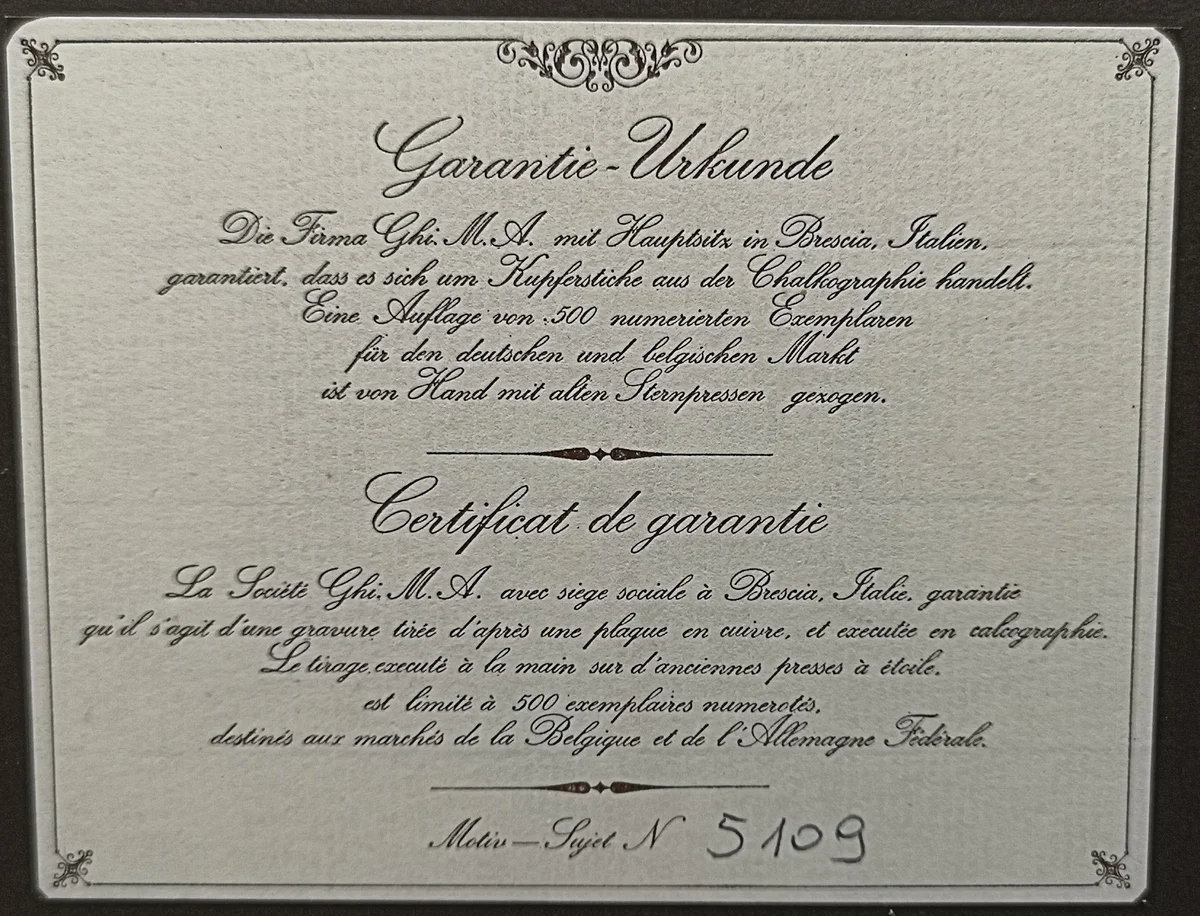 Garantie-Urkunde
Die Firma Ghi. M. A. mit Hauptsitz in Brescia, Italien,
garantiert, dass es sich um Kupferstiche aus der Chalkographie handelt.
Eine Auflage von 500 numerierten Exemplaren
für den deutschen und belgischen Markt
ist von Hand mit alten Sternpressen gezogen.
Certificat de garantie
La Société Ghi. M. A. avec siege sociale à Brescia, Italie, garantie
qu'il s'agit d'une gravure tirée d'après une plaque en cuivre, et executée en calcographie.
Le tirage executé à la main sur d'anciennes presses à étoile,
est limité à 500 exemplaires numerotés,
destinés aux marchés de la Belgique et de l'Allemagne Fédérale.
Motiv — Sujet N 5109